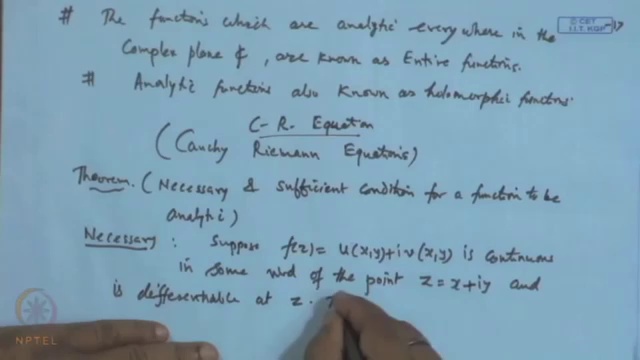 # The functions which are analytic every where in the
Complex plane ₵, are known as Entire functions.
# Analytic functions also known as holomorphic functions.
C-R. Equation
(Cauchy Riemann Equations)
Theorem. (Necessary & sufficient condition for a function to be
analytic)
Necessary : Suppose f(z) = u(x,y)+i v(x,y) is continuous
in some nbd of the point z = x+iy and
is differentiable at z.
© CET
I.I.T. KGP
NPTEL